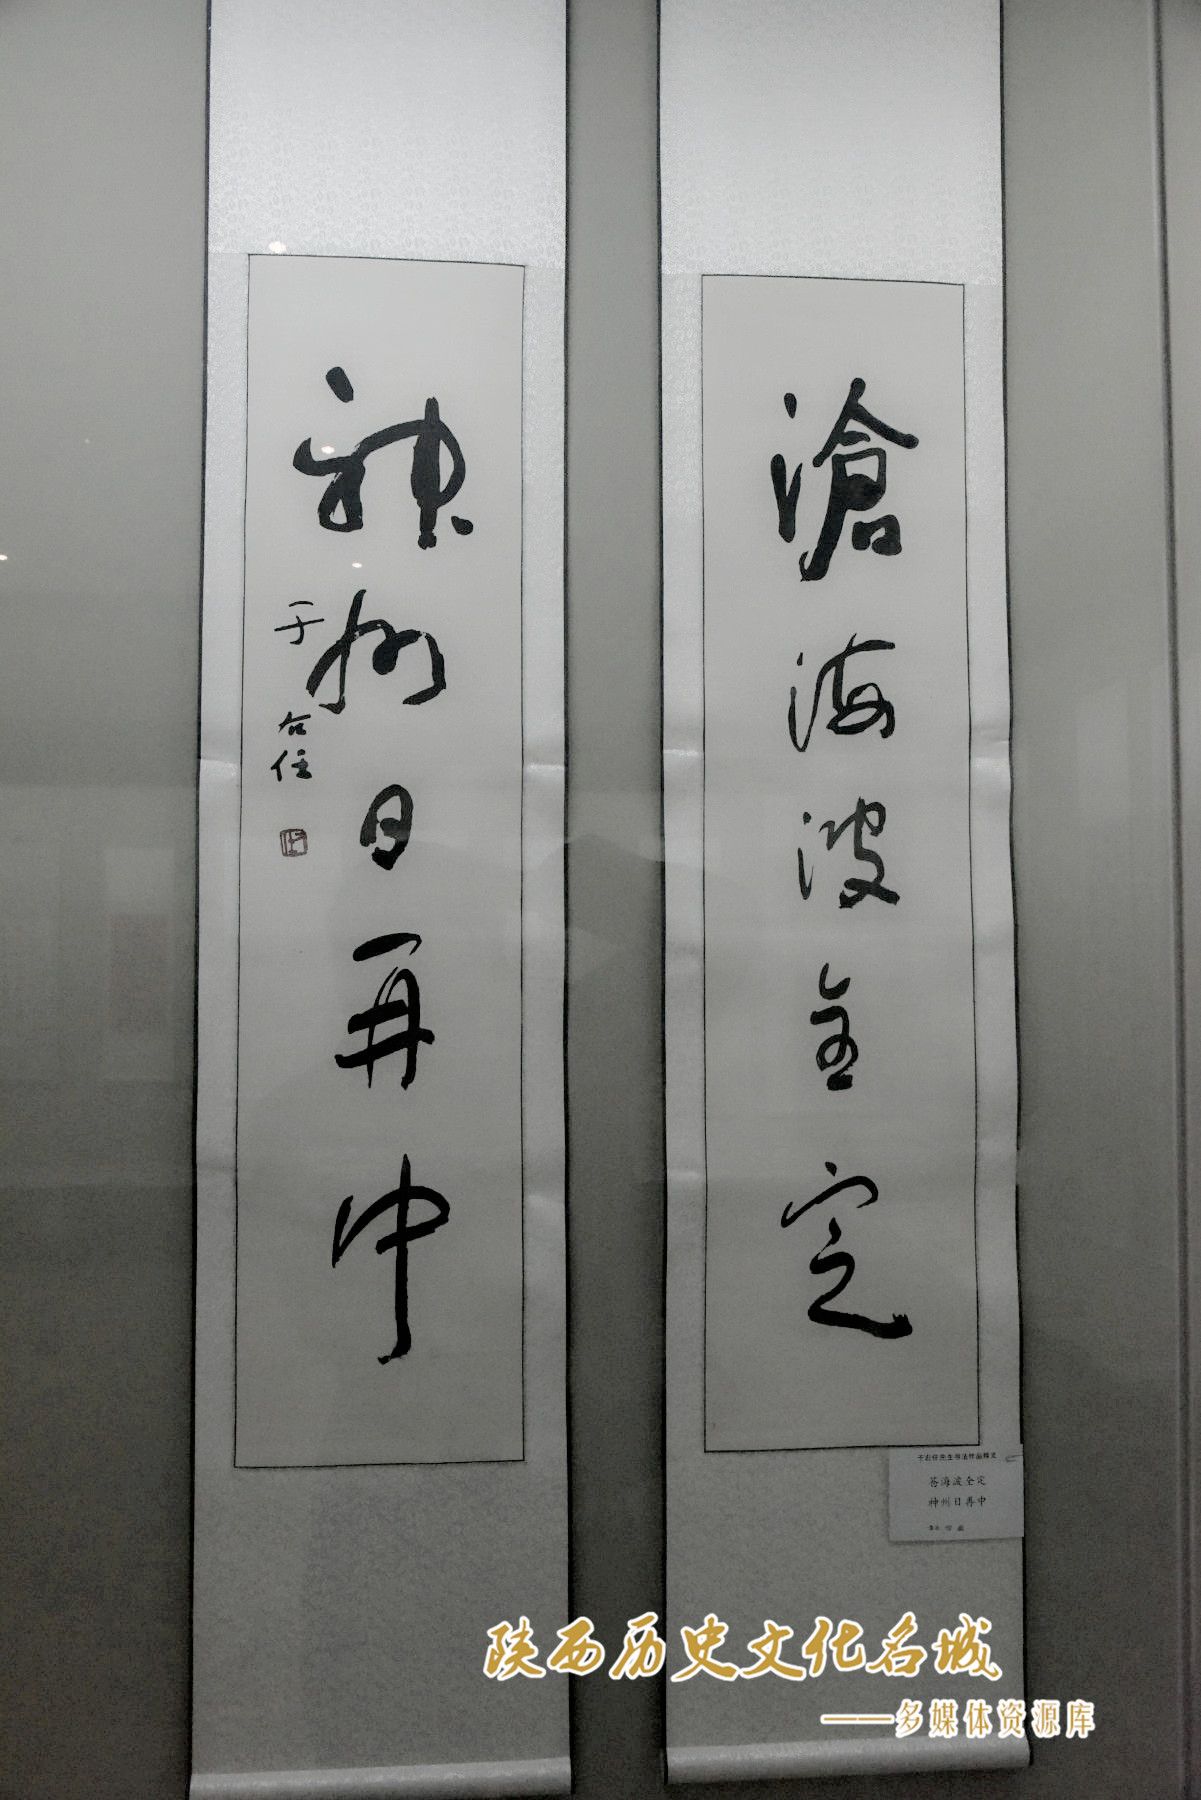 滄海波全定
神州日再中
于右任
于右任先生书法作品释文
苍海波全定
神州日再中
陕西历史文化名城
——多媒体资源库